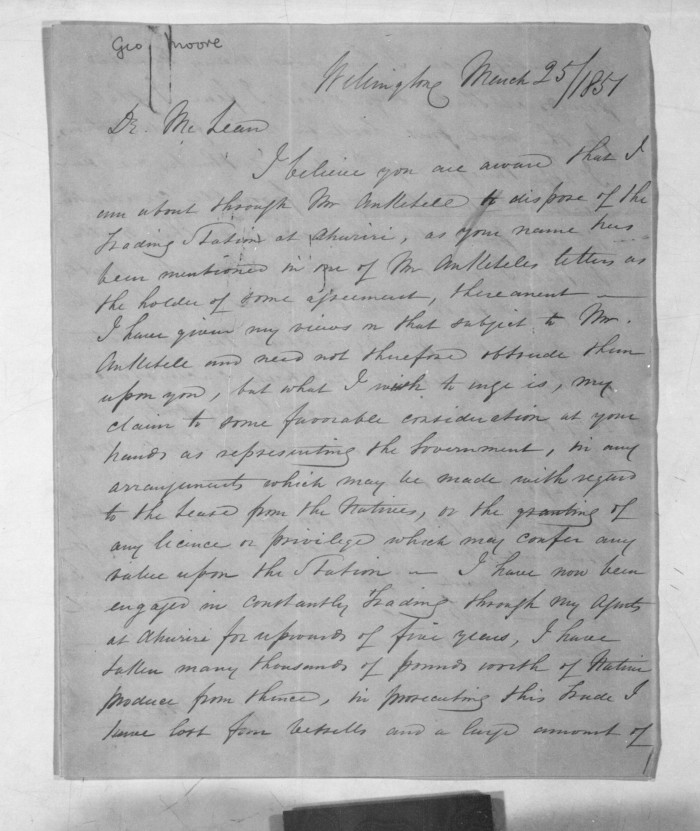 Geo Moore
Wellington March 25/1851
Dr. Mc Lean
I believe you are aware that I
am about through Mr Anketele to dispose of the
Trading Station at Ahuriri, as your name has
been mentioned in one of Mr Anketeles letters as
the holder of some agreement, thereanent —
I have given my views on that subject to Mr.
Anketele and need not therefore obtrude them
upon you, but what I wish to urge is, my
claim to some favorable consideration at your
hands as representing the Government, in any
arrangements which may be made with regard
to the Lease from the Natives, or the granting of
any licence or privilege which may confer any
value upon the Station — I have now been
engaged in constantly Trading through my Agents
at Ahuriri for upwards of five years, I have
taken many thousands of pounds worth of Native
produce from thence, in prosecuting this trade I
have lost four vessells and a large amount of